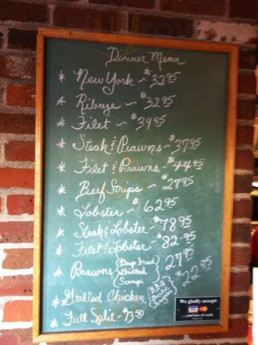 Dinner Menu
* New York ~ $32.95
* Ribeye ~ $32.95
* Filet ~ $39.95
* Steak & Prawns ~ $37.95
* Filet & Prawns ~ $44.95
* Beef Strips ~ $27.95
* Lobster ~ $62.95
* Steak & Lobster ~ $78.95
* Filet & Lobster ~ $82.95
* Prawns Deep Fried Grilled Scampi $27.95
* Grilled Chicken $22.95
* Full Split
We gladly accept: